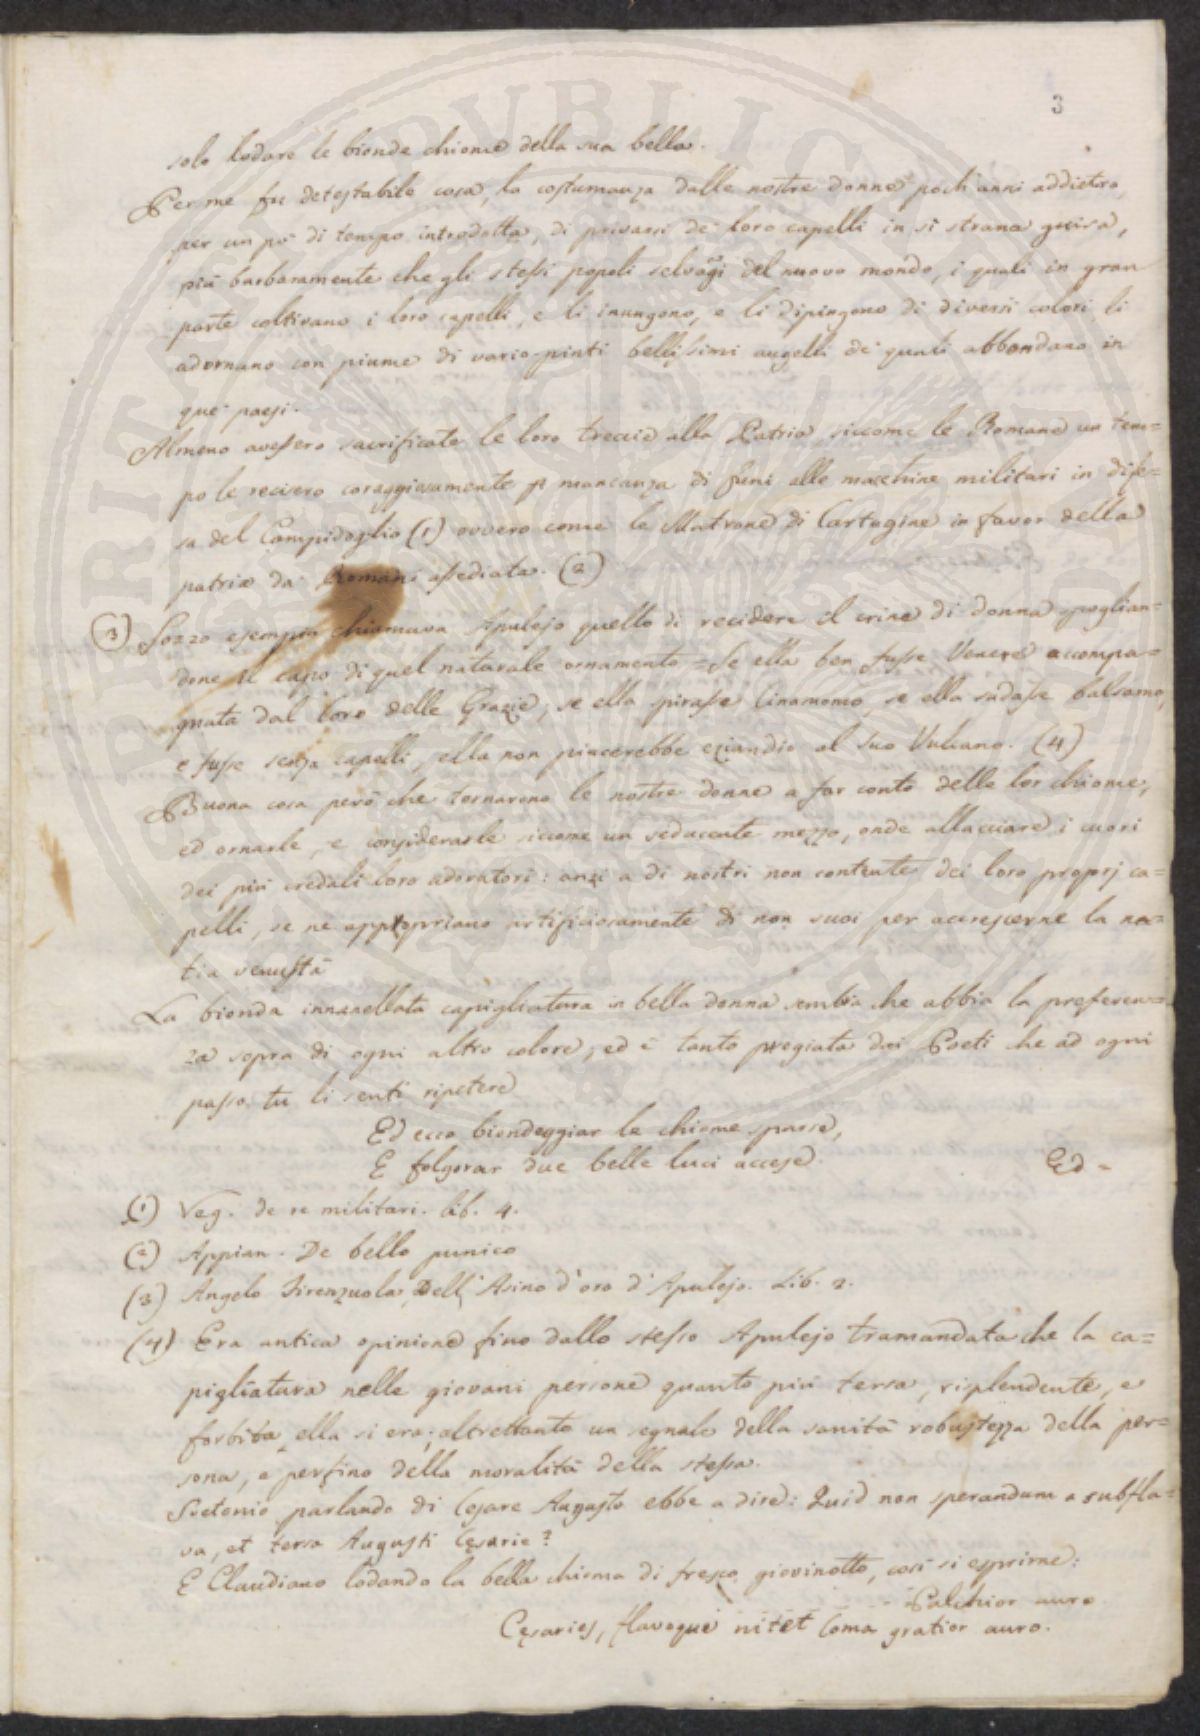 3
solo lodare le bionde chiome della sua bella.
Per me fu detestabile cosa, la costumanza dalle nostre donne pochi anni addietro,
per un pò di tempo introdotta, di privarsi de' loro capelli in si strana guisa,
più barbaramente che gli stessi popoli selvagi del nuovo mondo, i quali in gran
parte coltivano i loro capelli, e li inungono, e li dipingono di diversi colori li
adornano con piume di vario-pinti bellissimi augelli de' quali abbondano in
que' paesi.
Almeno avessero sacrificate le loro treccie alla Patria, siccome le Romane un tem=
po le recisero coraggiosamente p mancanza di funi alle macchine militari in dife=
sa del Campidoglio (1) ovvero come le Matrone di Cartagine in favor della
patria da' Romani assediata. (2)
(3) Sozzo esempio chiamava Apulejo quello di recidere il crine di donna spoglian=
done il capo di quel naturale ornamento = Se ella ben fusse Venere accompa=
gnata dal Coro delle Grazie, se ella spirasse Cinamomo, se ella sudasse balsamo,
e fusse senza capelli, ella non piacerebbe eziandio al suo Vulcano. (4)
Buona cosa però che tornarono le nostre donne a far conto delle lor chiome,
ed ornarle, e considerarle siccome un seducente mezzo, onde allacciare i cuori
dei più creduli loro adoratori: anzi a dì nostri non contente dei loro proprj ca=
pelli, se ne appropriano artificiosamente di non suoi per accrescerne la na=
tia venustà
La bionda innanellata capigliatura in bella donna sembra che abbia la preferen=
za sopra di ogni altro colore, ed è tanto pregiata dai Poeti che ad ogni
passo tu li senti ripetere
Ed ecco biondeggiar le chiome sparse,
E folgorar due belle luci accese.
Ed =
(1) Veg. de re militari. lib. 4.
(2) Appian. De bello punico
(3) Angelo Firenzuola, Dell' Asino d'oro d'Apulejo. Lib. 2.
(4) Era antica opinione fino dallo stesso Apulejo tramandata che la ca=
pigliatura nelle giovani persone quanto più tersa, risplendente, e
forbita ella si era, altrettanto un segnale della sanità robustezza della per=
sona, e perfino della moralità della stessa.
Svetonio parlando di Cesare Augusto ebbe a dire: Quid non sperandum a subfla=
va, et tersa Augusti Cęsarie?
E Claudiano lodando la bella chioma di fresco giovinotto, così si esprime:
Pulchior auro
Cęsaries, flavoque nitet Coma gratior auro.